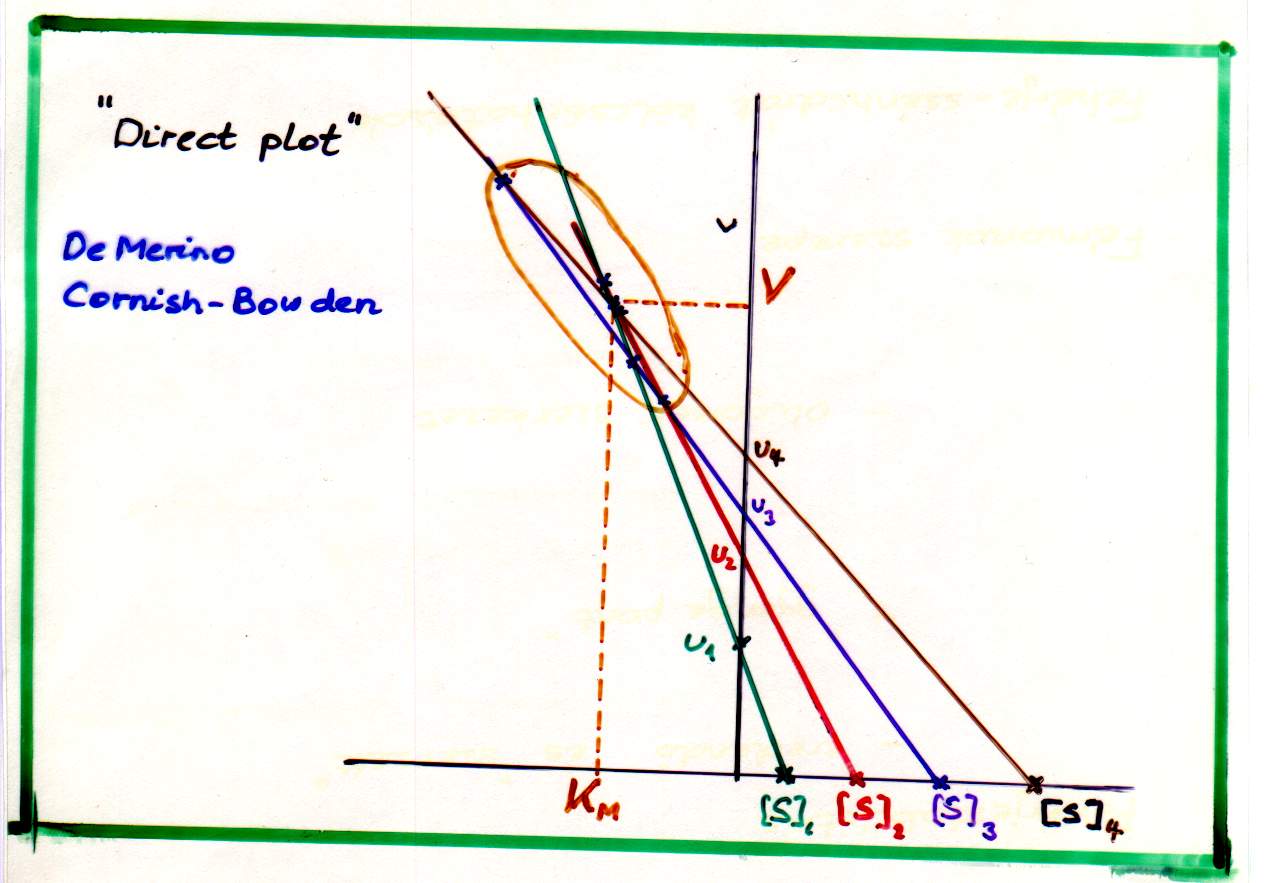 "Direct plot"
DeMerino
Cornish-Bowden
v
V
v4
v3
v2
v1
KM
[S]1
[S]2
[S]3
[S]4